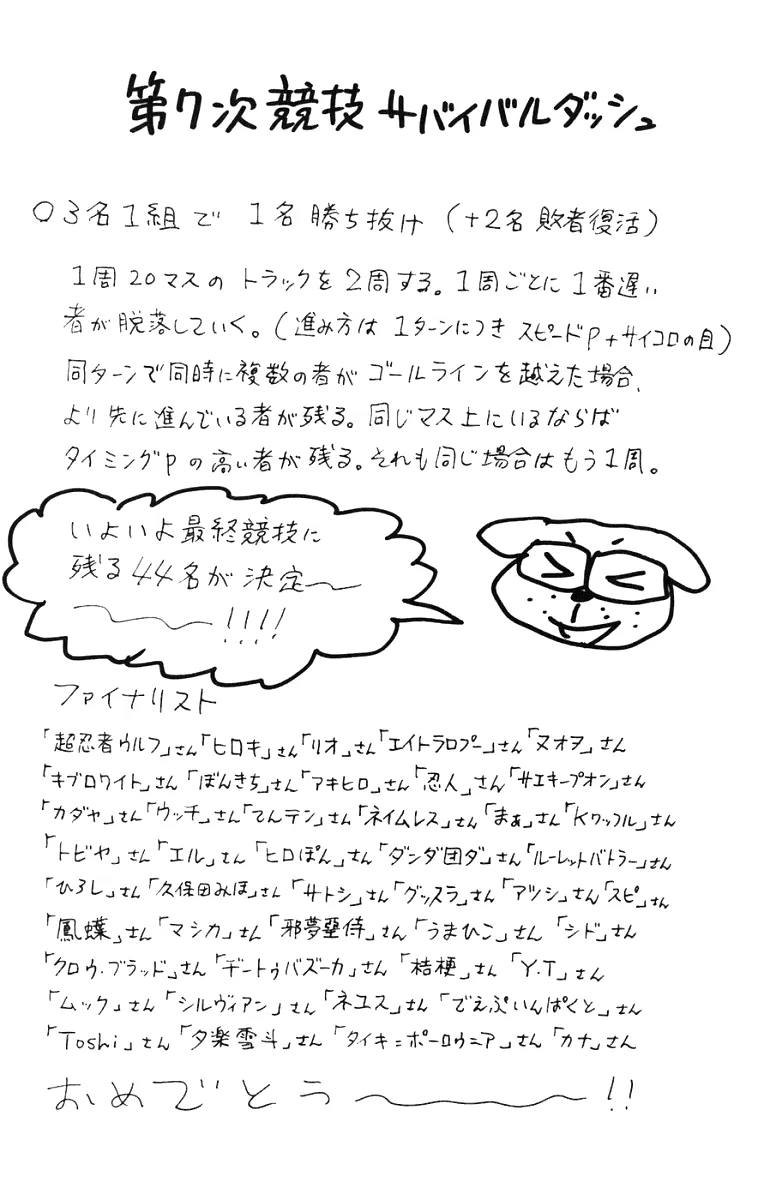 第7次競技 サバイバルダッシュ
○3名1組で 1名勝ち抜け（+2名 敗者復活）
1周20マスの トラックを2周する。1周ごとに1番遅い
者が脱落していく。（進み方は 1ターンにつき スピードP+サイコロの目）
同ターンで同時に複数の者が ゴールラインを越えた場合、
より先に進んでいる者が残る。同じマス上にいるならば
タイミングPの高い者が残る。それも同じ場合はもう1周。
いよいよ最終競技に
残る44名が決定〜
〜!!!!
ファイナリスト
「超忍者ウルフ」さん「ヒロキ」さん「リオ」さん「エイトラロプー」さん「ヌオヲ」さん
「キブロワイト」さん「ぽんきち」さん「アキヒロ」さん「忍人」さん「サエキープオン」さん
「カダヤ」さん「ウッチ」さん「てんテン」さん「ネイムレス」さん「まぁ」さん「Kワッフル」さん
「トビヤ」さん「エル」さん「ヒロぽん」さん「ダンダ団ダ」さん「ルーレットバトラー」さん
「ひろし」さん「久保田みほ」さん「サトシ」さん「グッスラ」さん「アツシ」さん「スピ」さん
「鳳蝶」さん「マシカ」さん「邪夢罌侍」さん「うまひこ」さん「シド」さん
「クロウ・ブラッド」さん「ヂートゥバズーカ」さん「桔梗」さん「Y.T」さん
「ムック」さん「シルヴィアン」さん「ネユス」さん「でえぷいんぱくと」さん
「Toshi」さん「夕楽雲斗」さん「タイキ=ポーロウニア」さん「カナ」さん
おめでとう〜!!